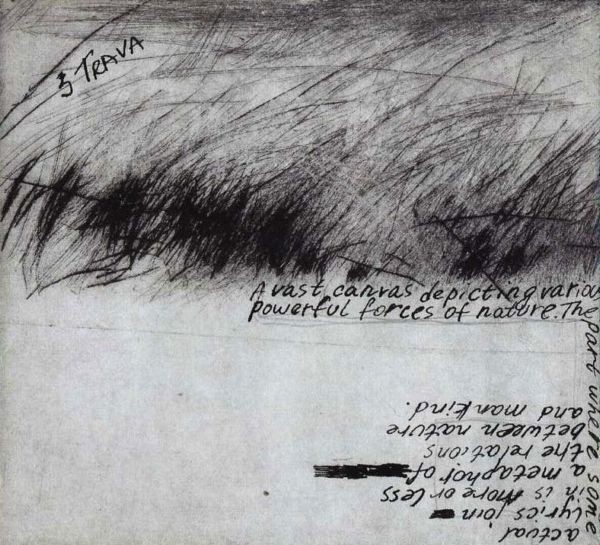 3 TRAVA
A vast canvas depicting variou
powerful forces of nature. The
part where some
actual
lyrics join
in is more or less
a metaphor of
the relations
between nature
and mankind.